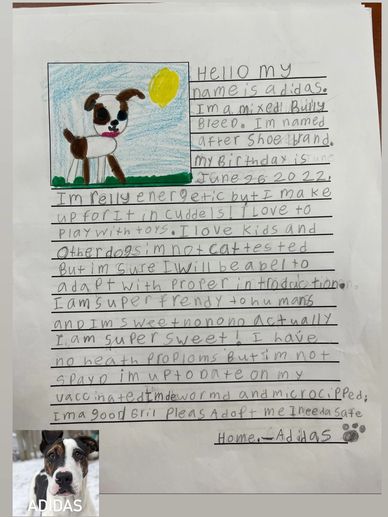 Hello my
name is adidas.
Im a mixed! Bully
Bleed. Im named
after Shoe brand.
my Birthday is
June 26 2022.
Im relly energetic but I make
up for It in cuddels! I love to
Play with toys. I love Kids and
other dogs im not cat tested
But im sure I will be apel to
adapt with proper introduction.
I am super frendy to humans
and Im sweet no no no actually
I am super sweet! I have
no heath proploms But im not
spayd im up to date on my
vaccinated Im dewormd and microcipped,
Im a good Gril Pleas Adopt me I need a Safe
Home.-Adidas
ADIDAS